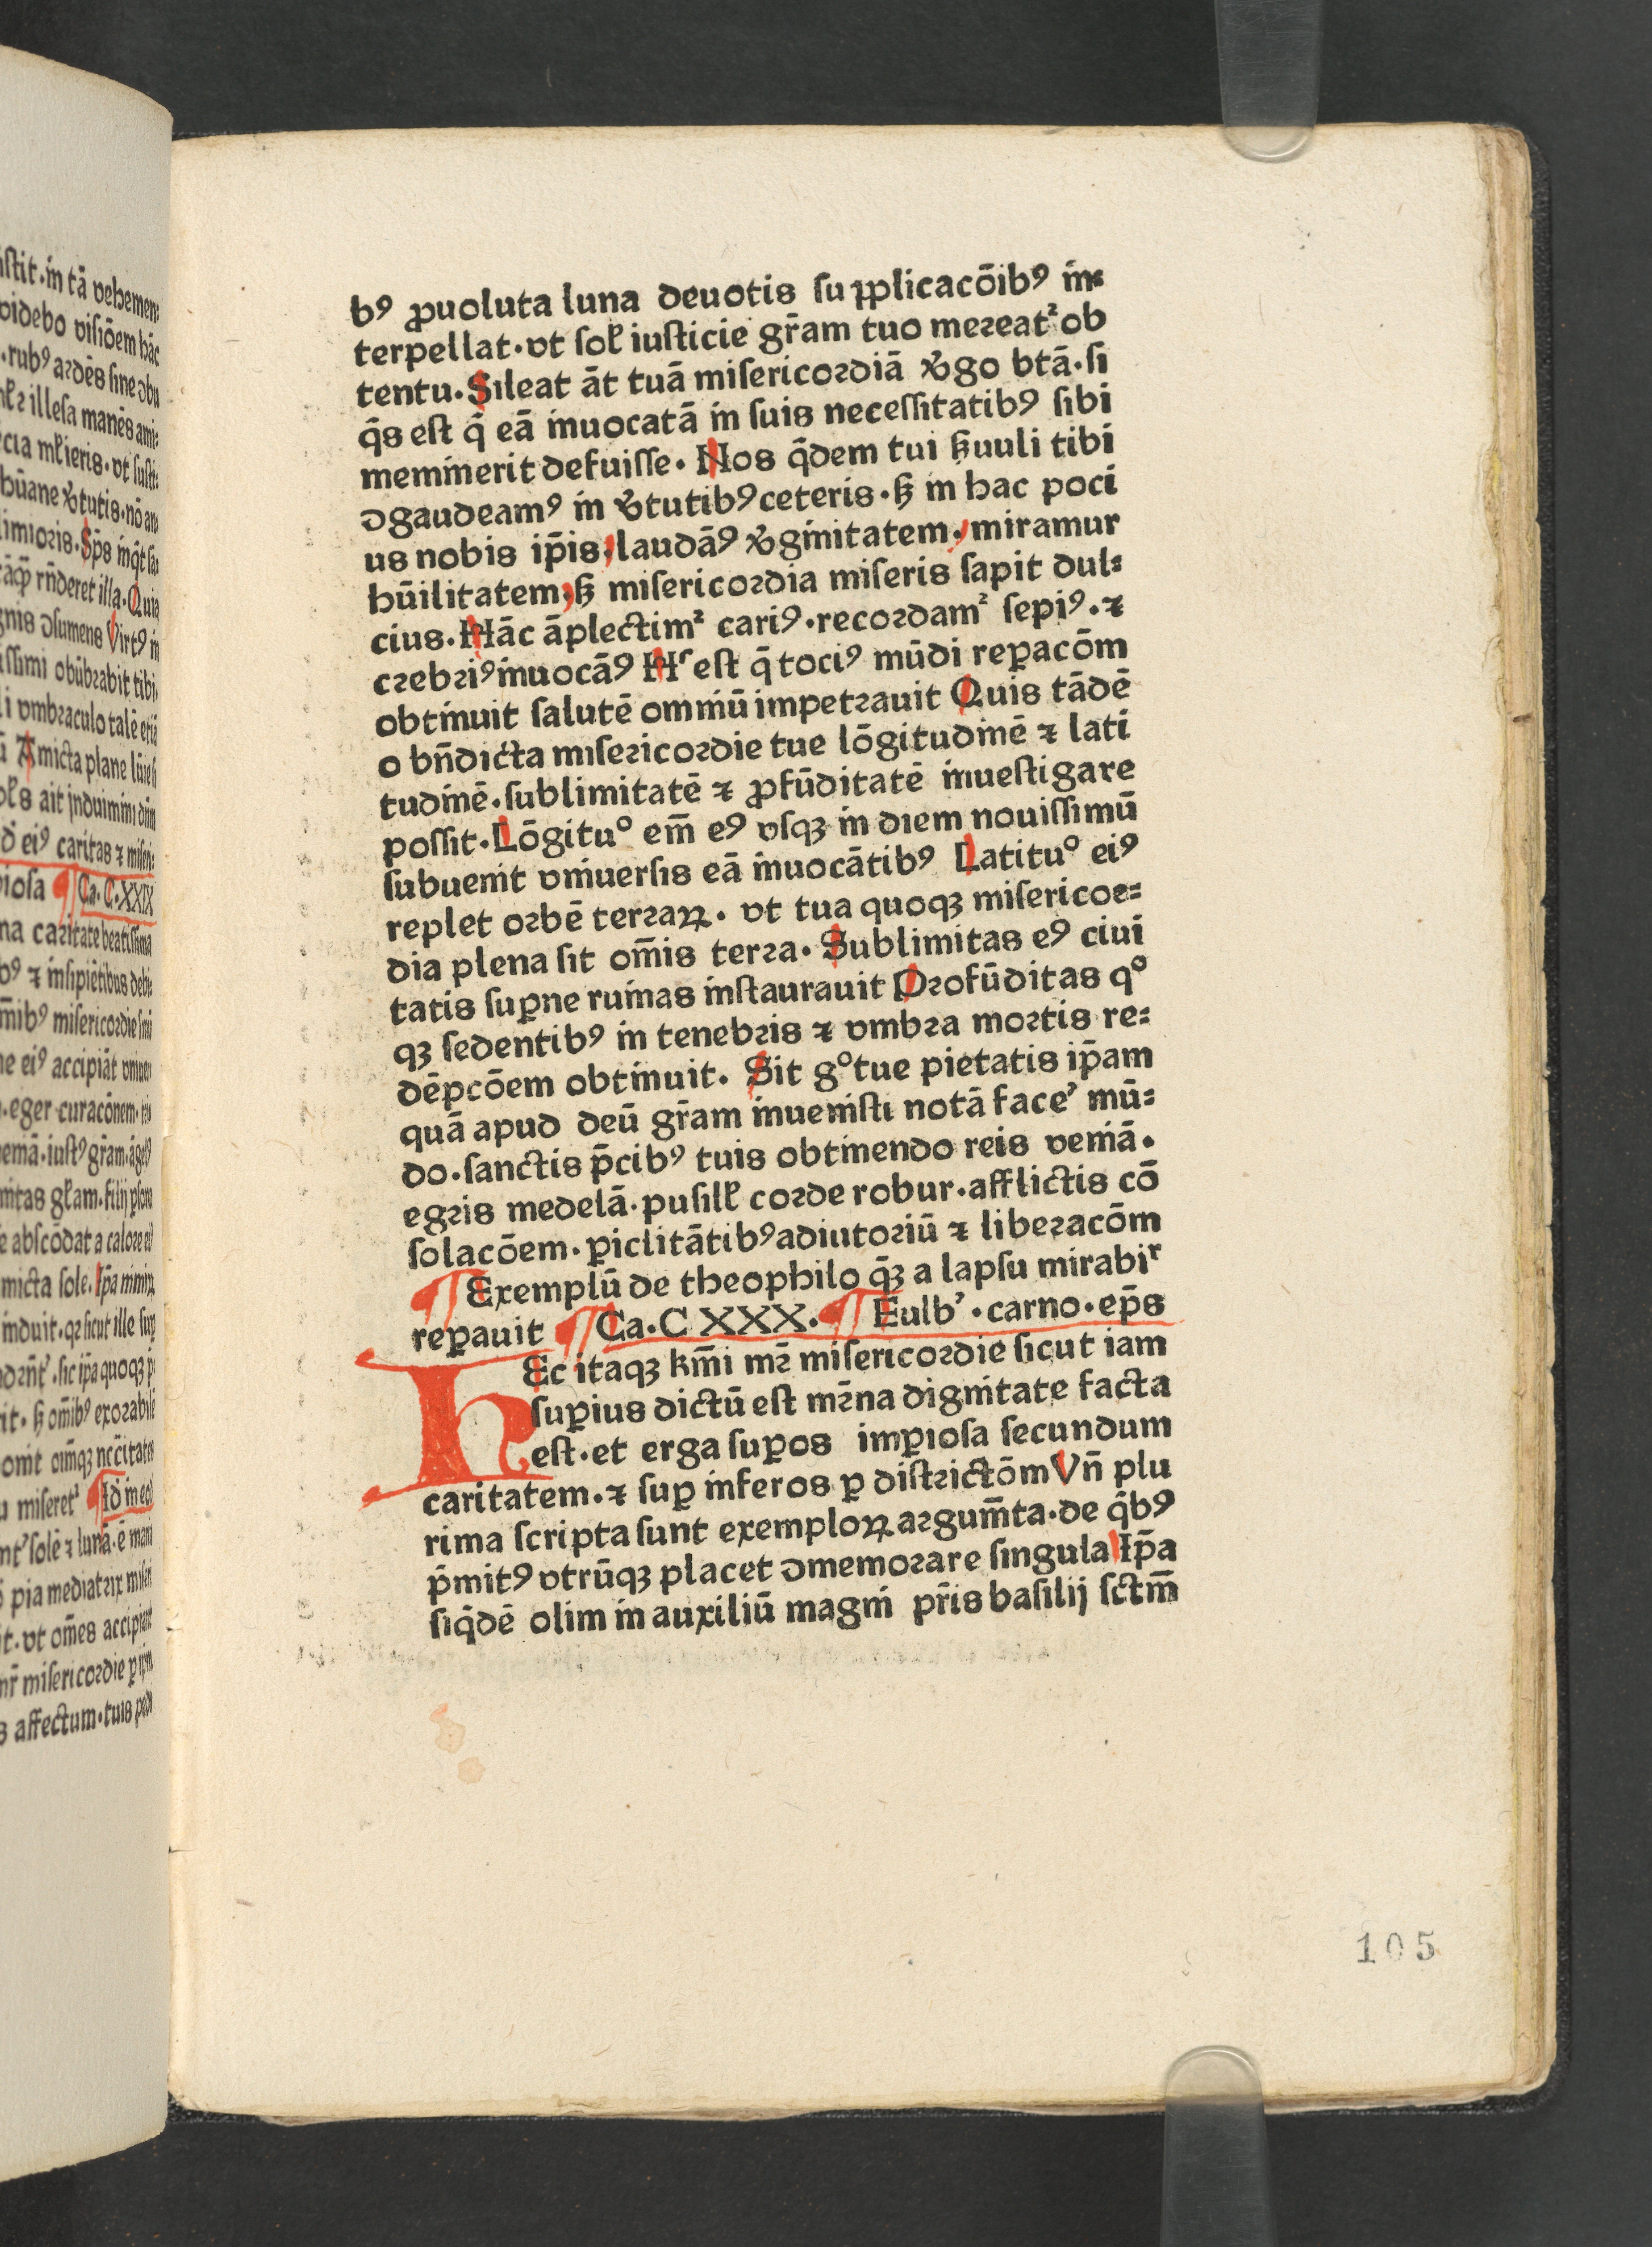 bꝰ ꝓuoluta luna deuotis ſupplicacōibꝰ in-
terpellat·vt ſol iuſticie gr̄am tuo mereat᷑ ob
tentu·Sileat āt tuā miſericordiā ꝟgo btā·ſi
q̄s eſt q̄ eā inuocatā in ſuis neceſſitatibꝰ ſibi
meminerit defuiſſe·Nos q̄dem tui ẜuuli tibi
ꝯgaudeamꝰ in ꝟtutibꝰ ceteris·ẜ in hac poci
us nobis ip̄is, laudāꝰ ꝟginitatem, miramur
hūilitatem, ẜ miſericordia miſeris ſapit dul=
cius·Hāc āplectim᷑ cariꝰ·recordam᷑ ſepiꝰ·⁊
crebriꝰ inuocāꝰ Hꝰ eſt q̄ tociꝰ mūdi reꝑacōm
obtinuit ſalutē omniū impetrauit Quis tādē
o bn̄dicta miſericordie tue lōgitudinē ⁊ lati
tudinē·ſublimitatē ⁊ ꝓfūditatē inueſtigare
poſſit·Lōgituº em̄ eꝰ vſqꝫ in diem nouiſſimū
ſubuenit vniuerſis eā inuocātibꝰ Latituº eiꝰ
replet orbē terraꝝ·vt tua quoqꝫ miſericor=
dia plena ſit om̄is terra·Sublimitas eꝰ ciui
tatis ſuꝑne ruinas inſtaurauit Profūditas qº
qꝫ ſedentibꝰ in tenebris ⁊ vmbra mortis re=
dēpcōem obtinuit·Sit gº tue pietatis ip̄am
quā apud deū gr̄am inueniſti notā faceˀ mū=
do·ſanctis p̄cibꝰ tuis obtinendo reis veniā·
egris medelā·puſill corde robur·afflictis cō
ſolacōem·ꝑiclitātibꝰ adiutoriū ⁊ liberacōm
¶ Exemplū de theophilo q̄ꝫ a lapſu mirabiʳ
reꝑauit ¶ Ca·C XXX·¶ Fulbˀ·carno·ep̄s
HEc itaqꝫ km̄i mr̄ miſericordie ſicut iam
ſuꝑius dictū eſt mr̄na dignitate facta
eſt·et erga ſuꝑos imꝑioſa ſecundum
caritatem·⁊ ſuꝑ inferos ꝑ diſtrictōm Vn̄ plu
rima ſcripta ſunt exemploꝝ argum̄ta·de q̄bꝰ
p̄mitꝰ vtrūqꝫ placet ꝯmemorare ſingula Ip̄a
ſiq̄dē olim in auxiliū magni pr̄is baſilij ſctm̄
105